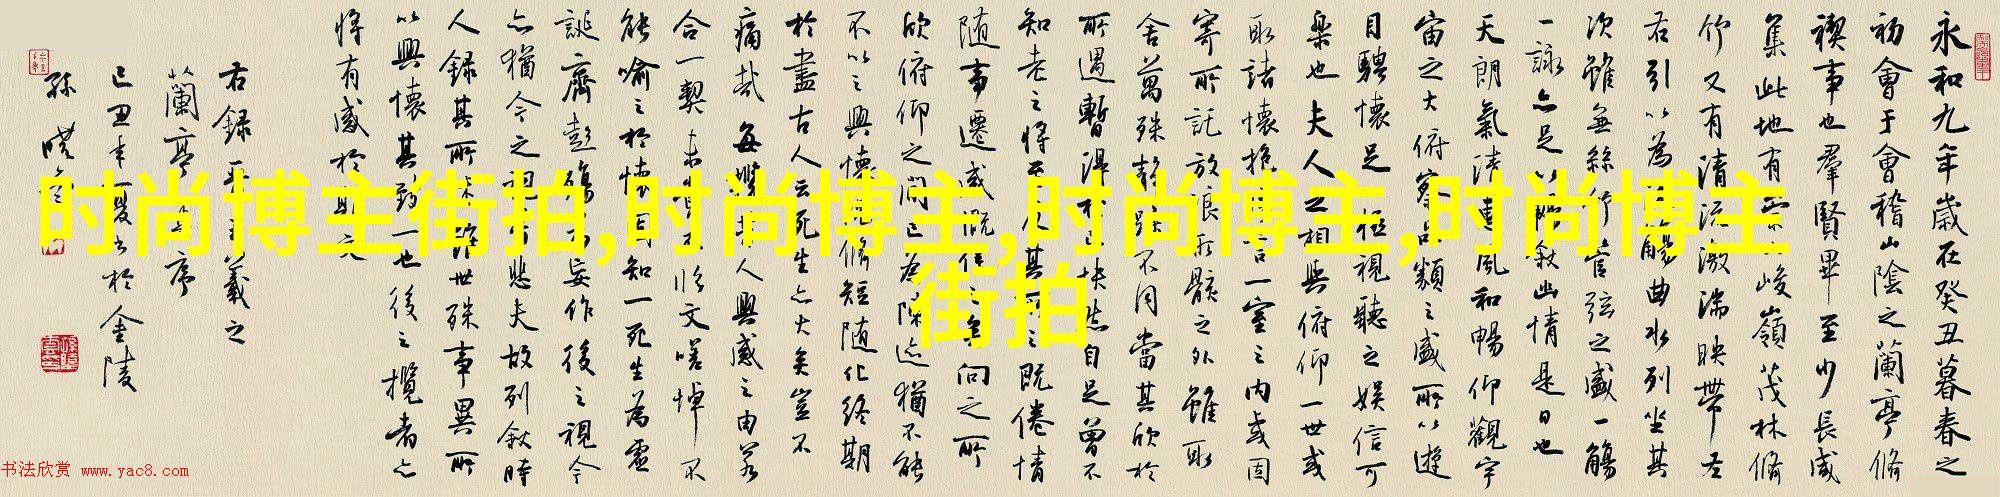 永和九年歲在癸丑暮春之
初會于會稽山陰之蘭亭脩
禊事也羣賢畢至少長咸
集此地有崇山峻嶺茂林脩
竹又有清流激湍映帶左
右引以為流觴曲水列坐其
次雖無絲竹管弦之盛一觴
一詠亦足以暢敘幽情是日也
天朗氣清惠風和暢仰觀宇
宙之大俯察品類之盛所以遊
目騁懷足以極視聽之娛信可
樂也夫人之相與俯仰一世或
取諸懷抱悟言一室之內或因
寄所託放浪形骸之外雖取
舍萬殊靜躁不同當其欣於
所遇暫得於己怏然自足曾不
知老之將至及其所之既倦情
隨事遷感慨係之矣向之所
欣俯仰之間已為陳迹猶不能
不以之興懷況脩短隨化終期
於盡古人云死生亦大矣豈不
痛哉每攬昔人興感之由若
合一契未嘗不臨文嗟悼不
能喻之於懷固知一死生為虛
誕齊彭殤為妄作後之視今
亦猶今之視昔悲夫故列敘時
人錄其所述雖世殊事異所
以興懷其致一也後之攬者亦
將有感於斯文
右錄王羲之
蘭亭序
己丑年夏書於金陵
孫曉雲
时尚博主街拍,时尚博主,时尚博主,时尚博主
街拍
书法欣赏 www.yac8.com